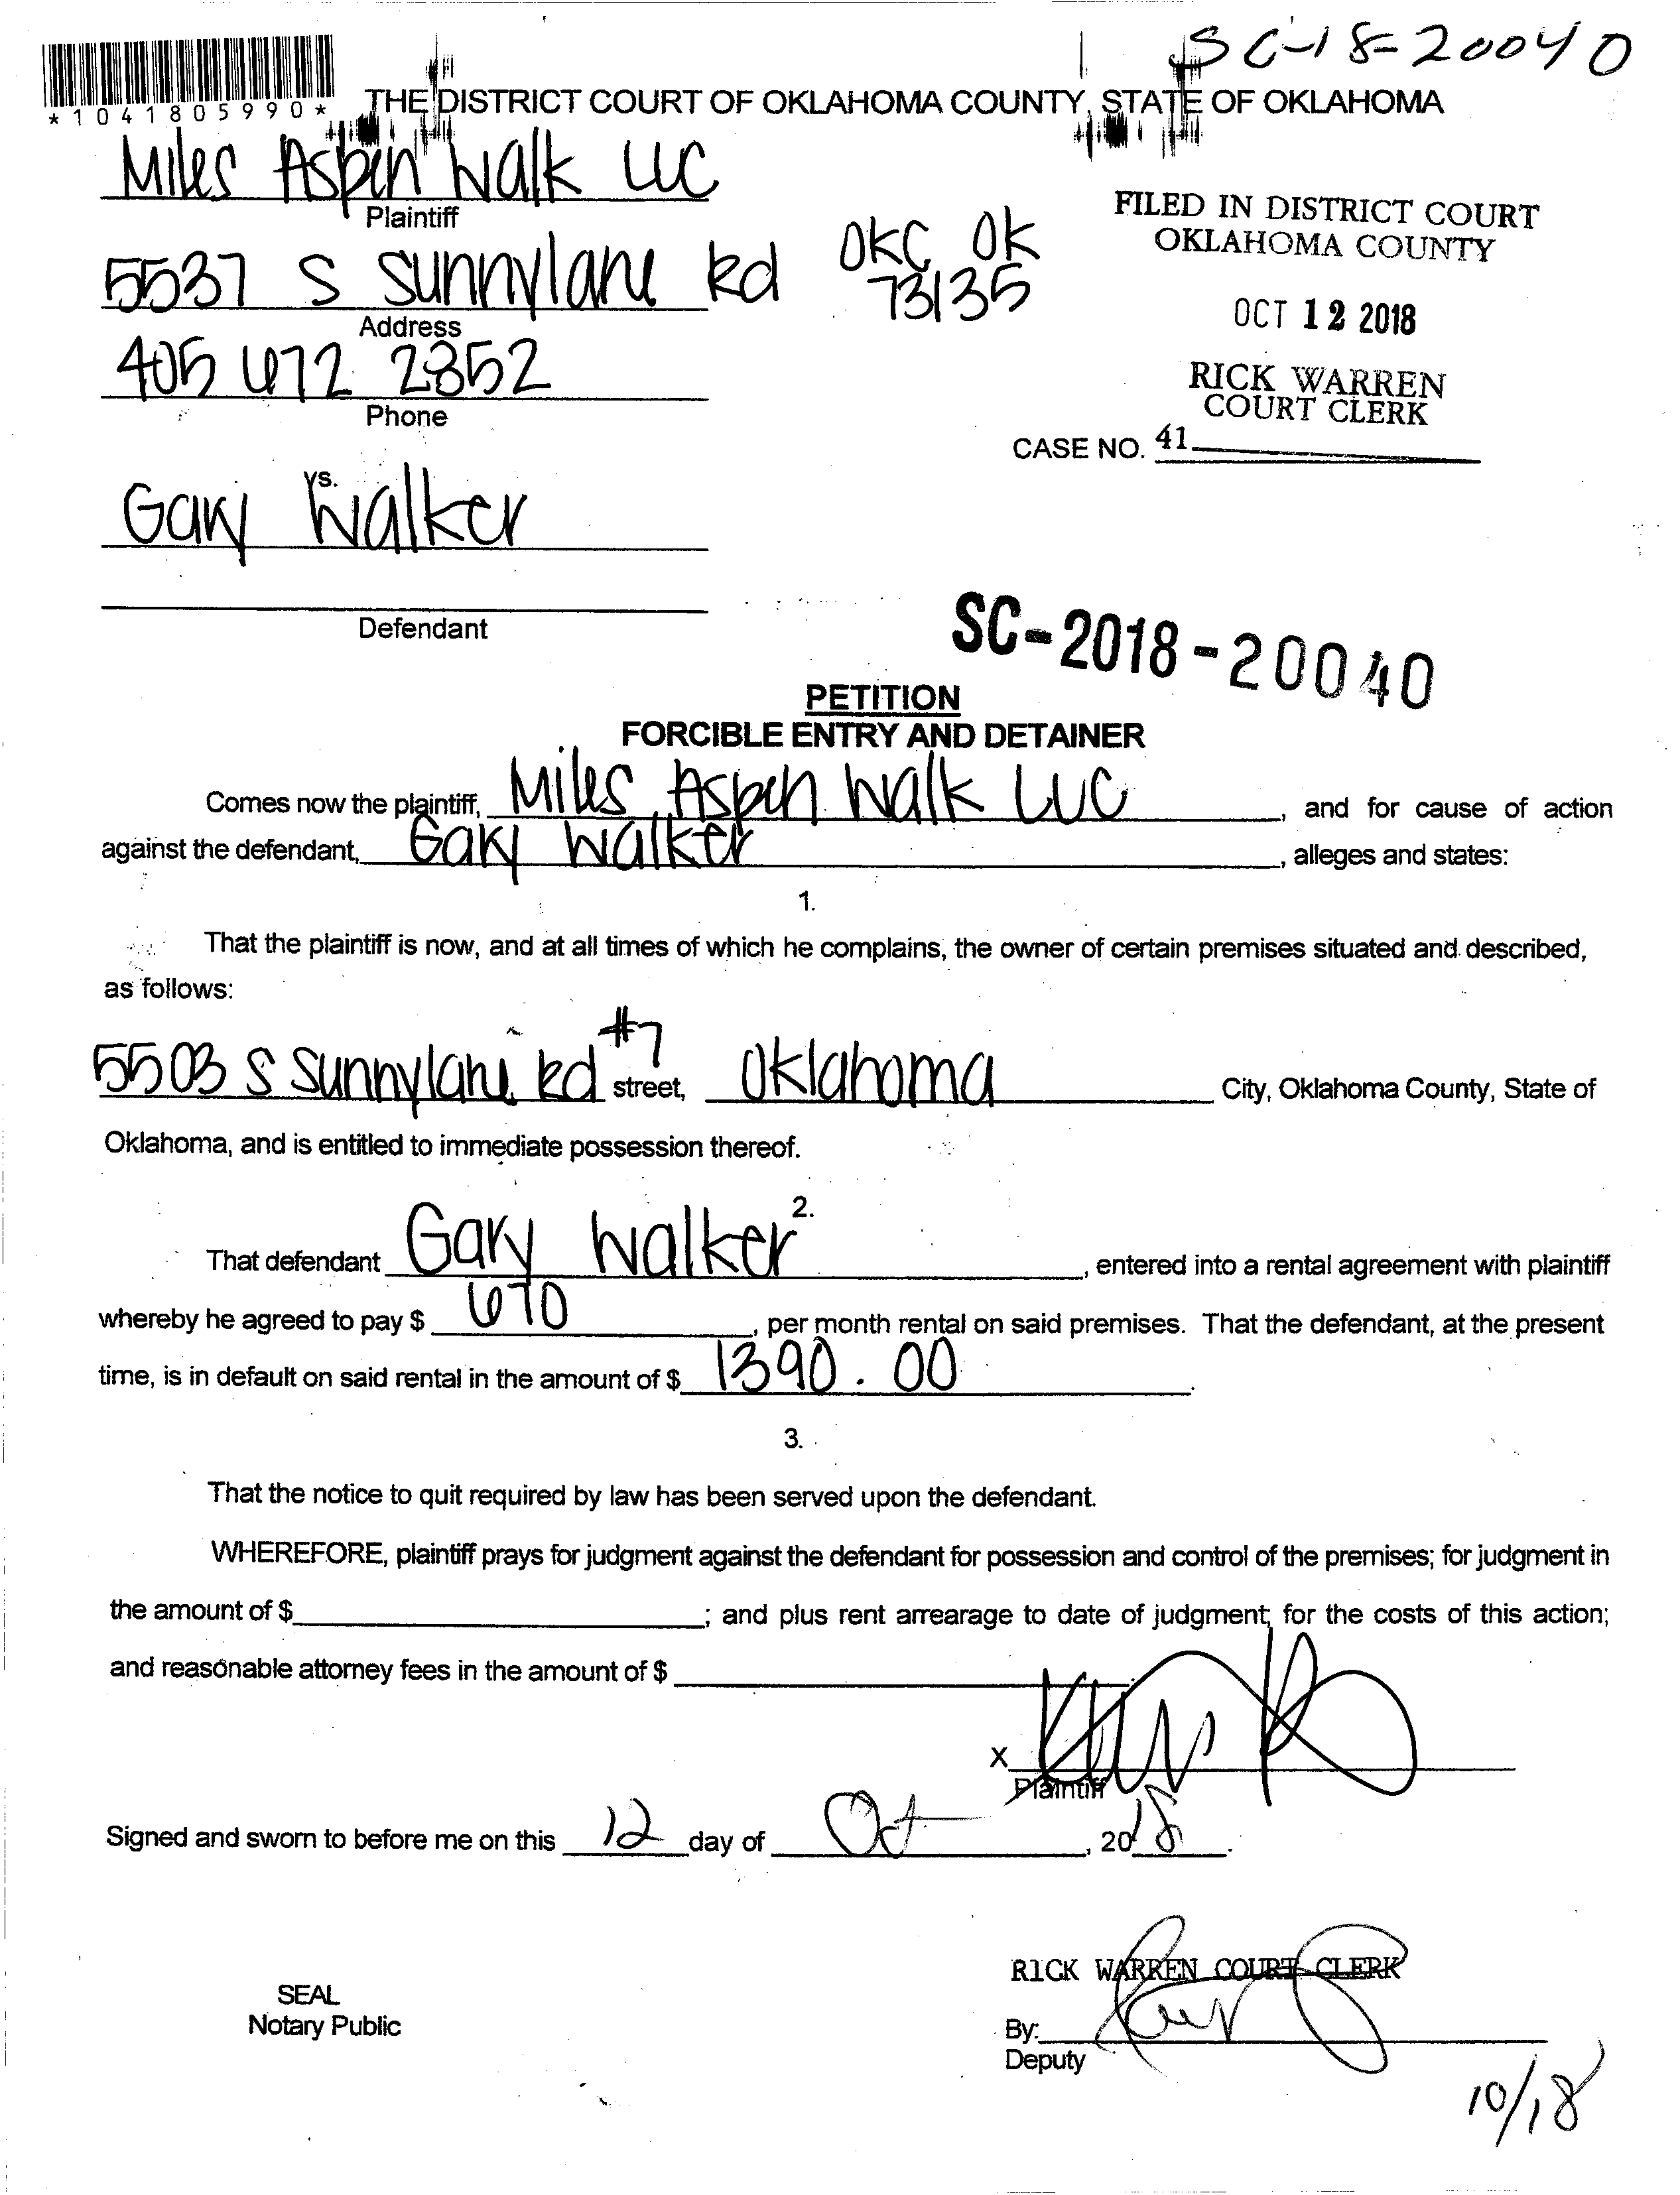 SC-18-20040
*1041805990*
THE DISTRICT COURT OF OKLAHOMA COUNTY, STATE OF OKLAHOMA
Miles Aspen Walk LLC
Plaintiff
FILED IN DISTRICT COURT
OKLAHOMA COUNTY
5537 S Sunnylane Rd OKC OK
73135
Address
OCT 12 2018
405 672 2352
Phone
RICK WARREN
COURT CLERK
CASE NO. 41
vs.
Gary Walker
Defendant
SC-2018-20040
PETITION
FORCIBLE ENTRY AND DETAINER
Comes now the plaintiff, Miles Aspen Walk LLC, and for cause of action
against the defendant, Gary Walker, alleges and states:
1.
That the plaintiff is now, and at all times of which he complains, the owner of certain premises situated and described,
as follows:
5503 S Sunnylane Rd #7 street, Oklahoma City, Oklahoma County, State of
Oklahoma, and is entitled to immediate possession thereof.
2.
That defendant Gary Walker, entered into a rental agreement with plaintiff
whereby he agreed to pay $ 670, per month rental on said premises. That the defendant, at the present
time, is in default on said rental in the amount of $ 1390.00.
3.
That the notice to quit required by law has been served upon the defendant.
WHEREFORE, plaintiff prays for judgment against the defendant for possession and control of the premises; for judgment in
the amount of $ ; and plus rent arrearage to date of judgment; for the costs of this action;
and reasonable attorney fees in the amount of $ .
X
Plaintiff
Signed and sworn to before me on this 12 day of Oct, 2018.
RICK WARREN COURT CLERK
SEAL
Notary Public
By:
Deputy
10/18